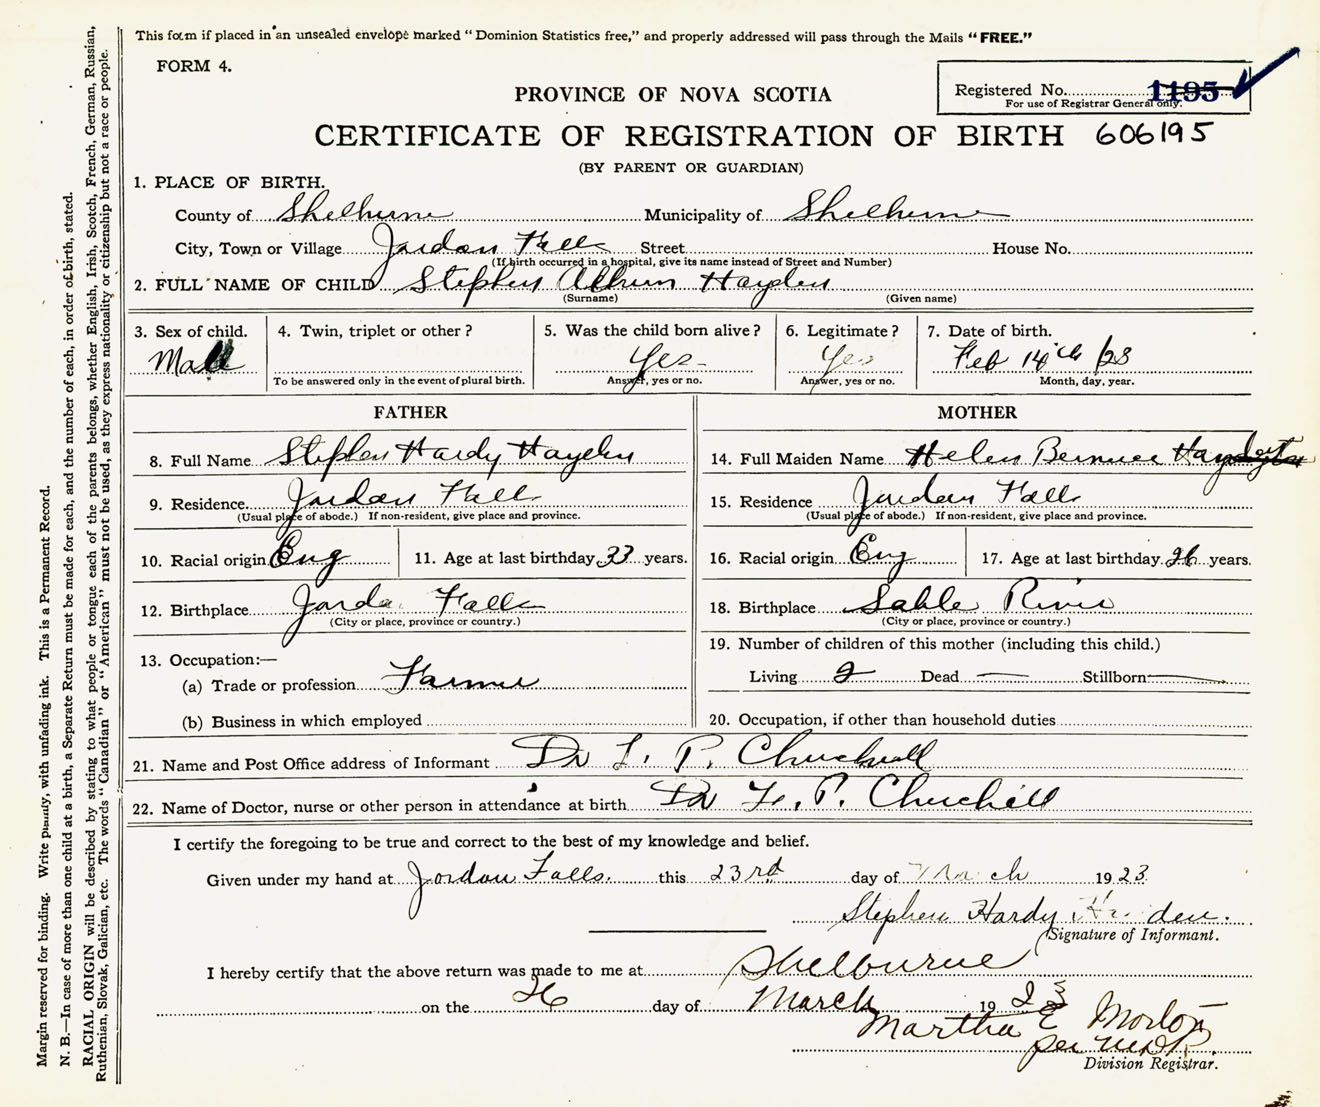 This form if placed in an unsealed envelope marked “Dominion Statistics free,” and properly addressed will pass through the Mails “FREE.”
FORM 4.
Registered No. 1195
For use of Registrar General only.
PROVINCE OF NOVA SCOTIA
CERTIFICATE OF REGISTRATION OF BIRTH 606195
(BY PARENT OR GUARDIAN)
1. PLACE OF BIRTH.
County of Shelburne Municipality of Shelburne
City, Town or Village Jordan Falls Street House No.
(If birth occurred in a hospital, give its name instead of Street and Number)
2. FULL NAME OF CHILD Stephen Hayden
(Surname) (Given name)
3. Sex of child. 4. Twin, triplet or other? 5. Was the child born alive? 6. Legitimate? 7. Date of birth.
Male Yes Yes Feb 14th /23
To be answered only in the event of plural birth. Answer, yes or no. Answer, yes or no. Month, day, year.
FATHER MOTHER
8. Full Name Stephen Hardy Hayden
14. Full Maiden Name Helen Bernice
9. Residence Jordan Falls
15. Residence Jordan Falls
(Usual place of abode.) If non-resident, give place and province.
(Usual place of abode.) If non-resident, give place and province.
10. Racial origin Eng 11. Age at last birthday 33 years.
16. Racial origin Eng 17. Age at last birthday 26 years.
12. Birthplace Jordan Falls
18. Birthplace Sable River
(City or place, province or country.)
(City or place, province or country.)
13. Occupation:—
19. Number of children of this mother (including this child.)
(a) Trade or profession Farmer
Living 2 Dead — Stillborn —
(b) Business in which employed
20. Occupation, if other than household duties
21. Name and Post Office address of Informant Dr L. P. Churchill
22. Name of Doctor, nurse or other person in attendance at birth Dr L. P. Churchill
I certify the foregoing to be true and correct to the best of my knowledge and belief.
Given under my hand at Jordan Falls. this 23rd day of March 1923
Stephen Hardy Hayden.
Signature of Informant.
I hereby certify that the above return was made to me at Shelburne
on the 26 day of March 1923
Martha E Morton
per
Division Registrar.
Margin reserved for binding. Write plainly, with unfading ink. This is a Permanent Record.
N. B.—In case of more than one child at a birth, a Separate Return must be made for each, and the number of each, in order of birth, stated.
RACIAL ORIGIN will be described by stating to what people or tongue each of the parents belongs, whether English, Irish, Scotch, French, German, Russian,
Ruthenian, Slovak, Galician, etc. The words “Canadian” or “American” must not be used, as they express nationality or citizenship but not a race or people.